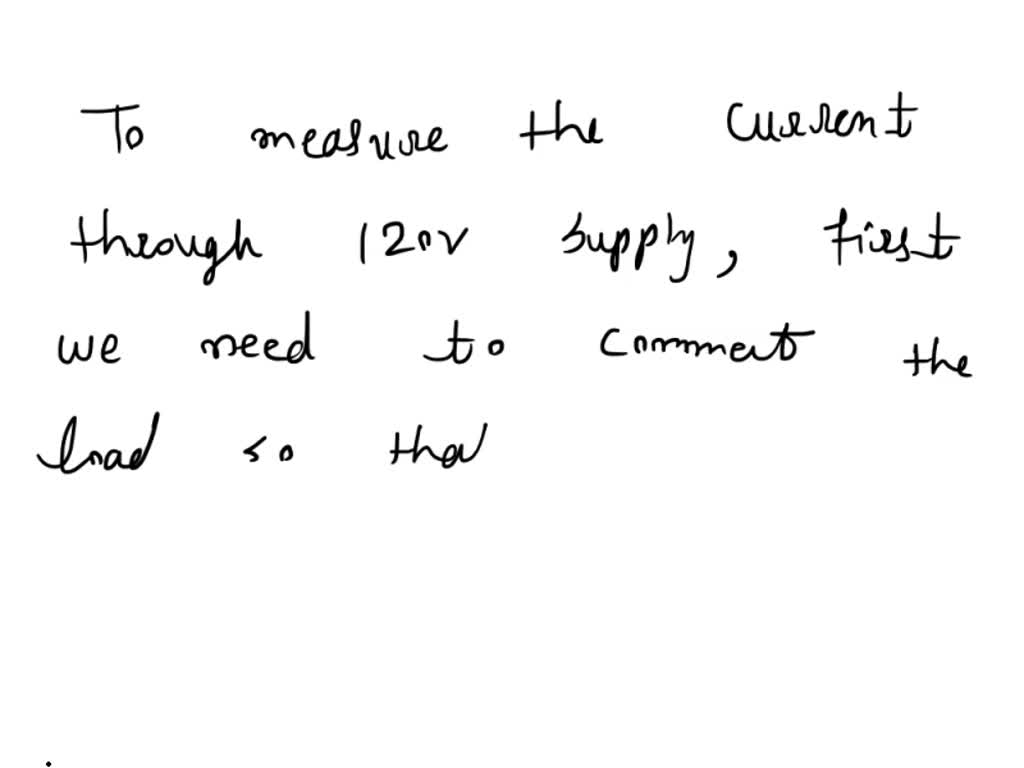 To measure the current
through 120V supply, first
we need to comment the
load so that